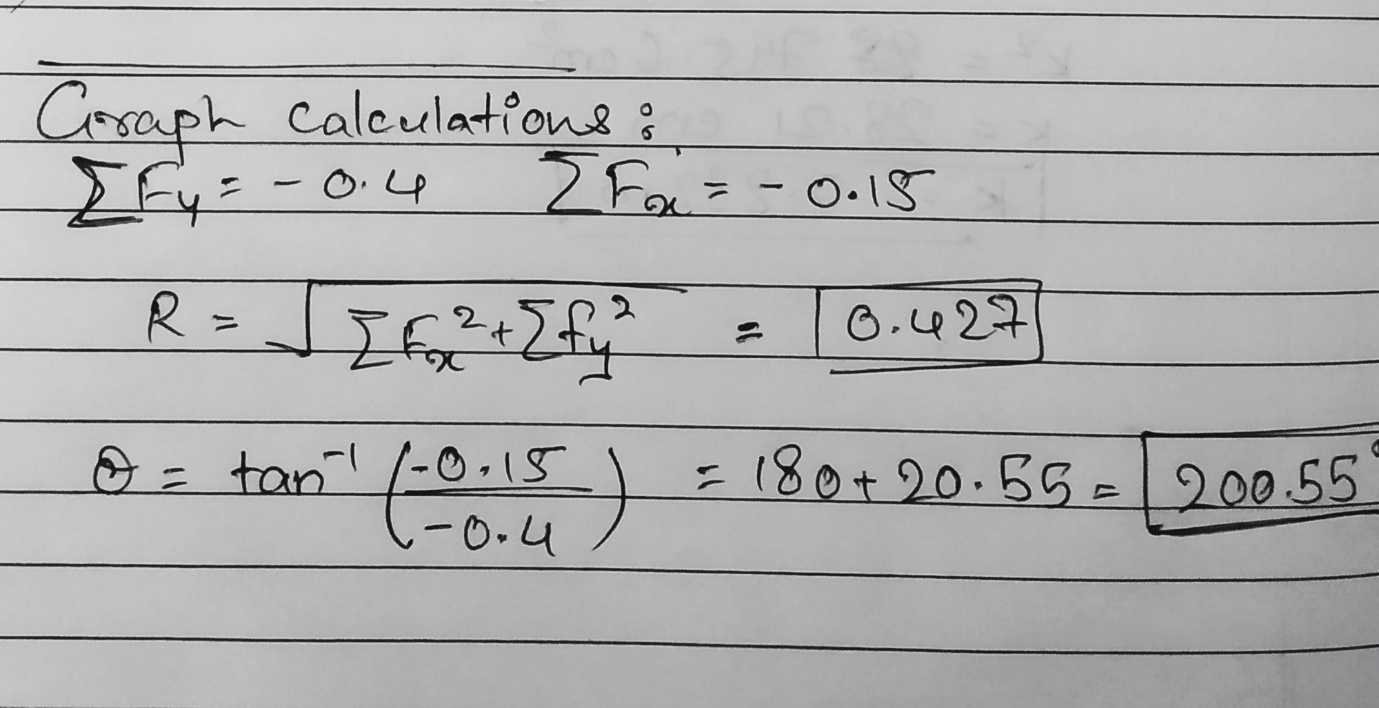 Graph calculations :
ΣFy = - 0.4 ΣFx = - 0.15
R = √ΣFx² + Σfy² = 0.427
θ = tan⁻¹ (-0.15 / -0.4) = 180 + 20.55 = 200.55°